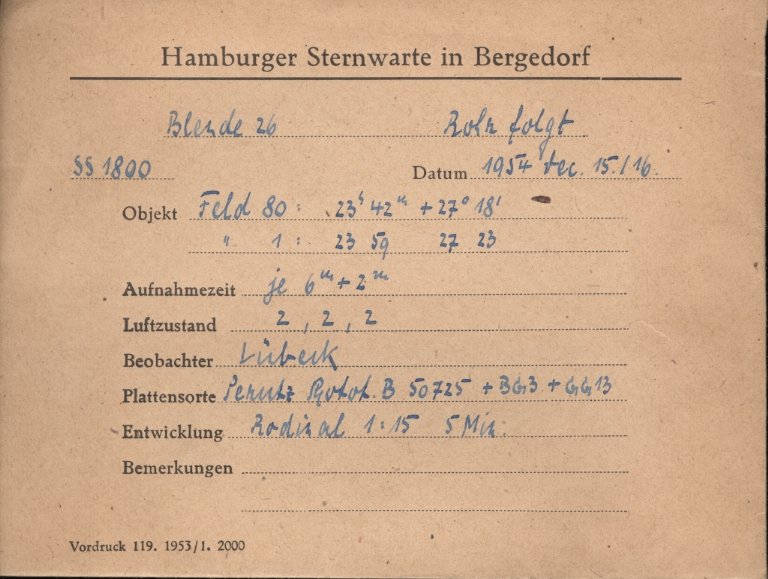 Hamburger Sternwarte in Bergedorf
Blende 26 Rohr folgt
SS 1800 Datum 1954 Dec. 15./16.
Objekt Feld 80 : 23ʰ 42ᵐ + 27° 18'
" 1 : 23 59 27 23
Aufnahmezeit je 6ᵐ + 2ᵐ
Luftzustand 2, 2, 2
Beobachter Lübeck
Plattensorte Perutz Photot. B 50725 + BG3 + GG13
Entwicklung Rodinal 1:15 5 Min.
Bemerkungen
Vordruck 119. 1953/1. 2000